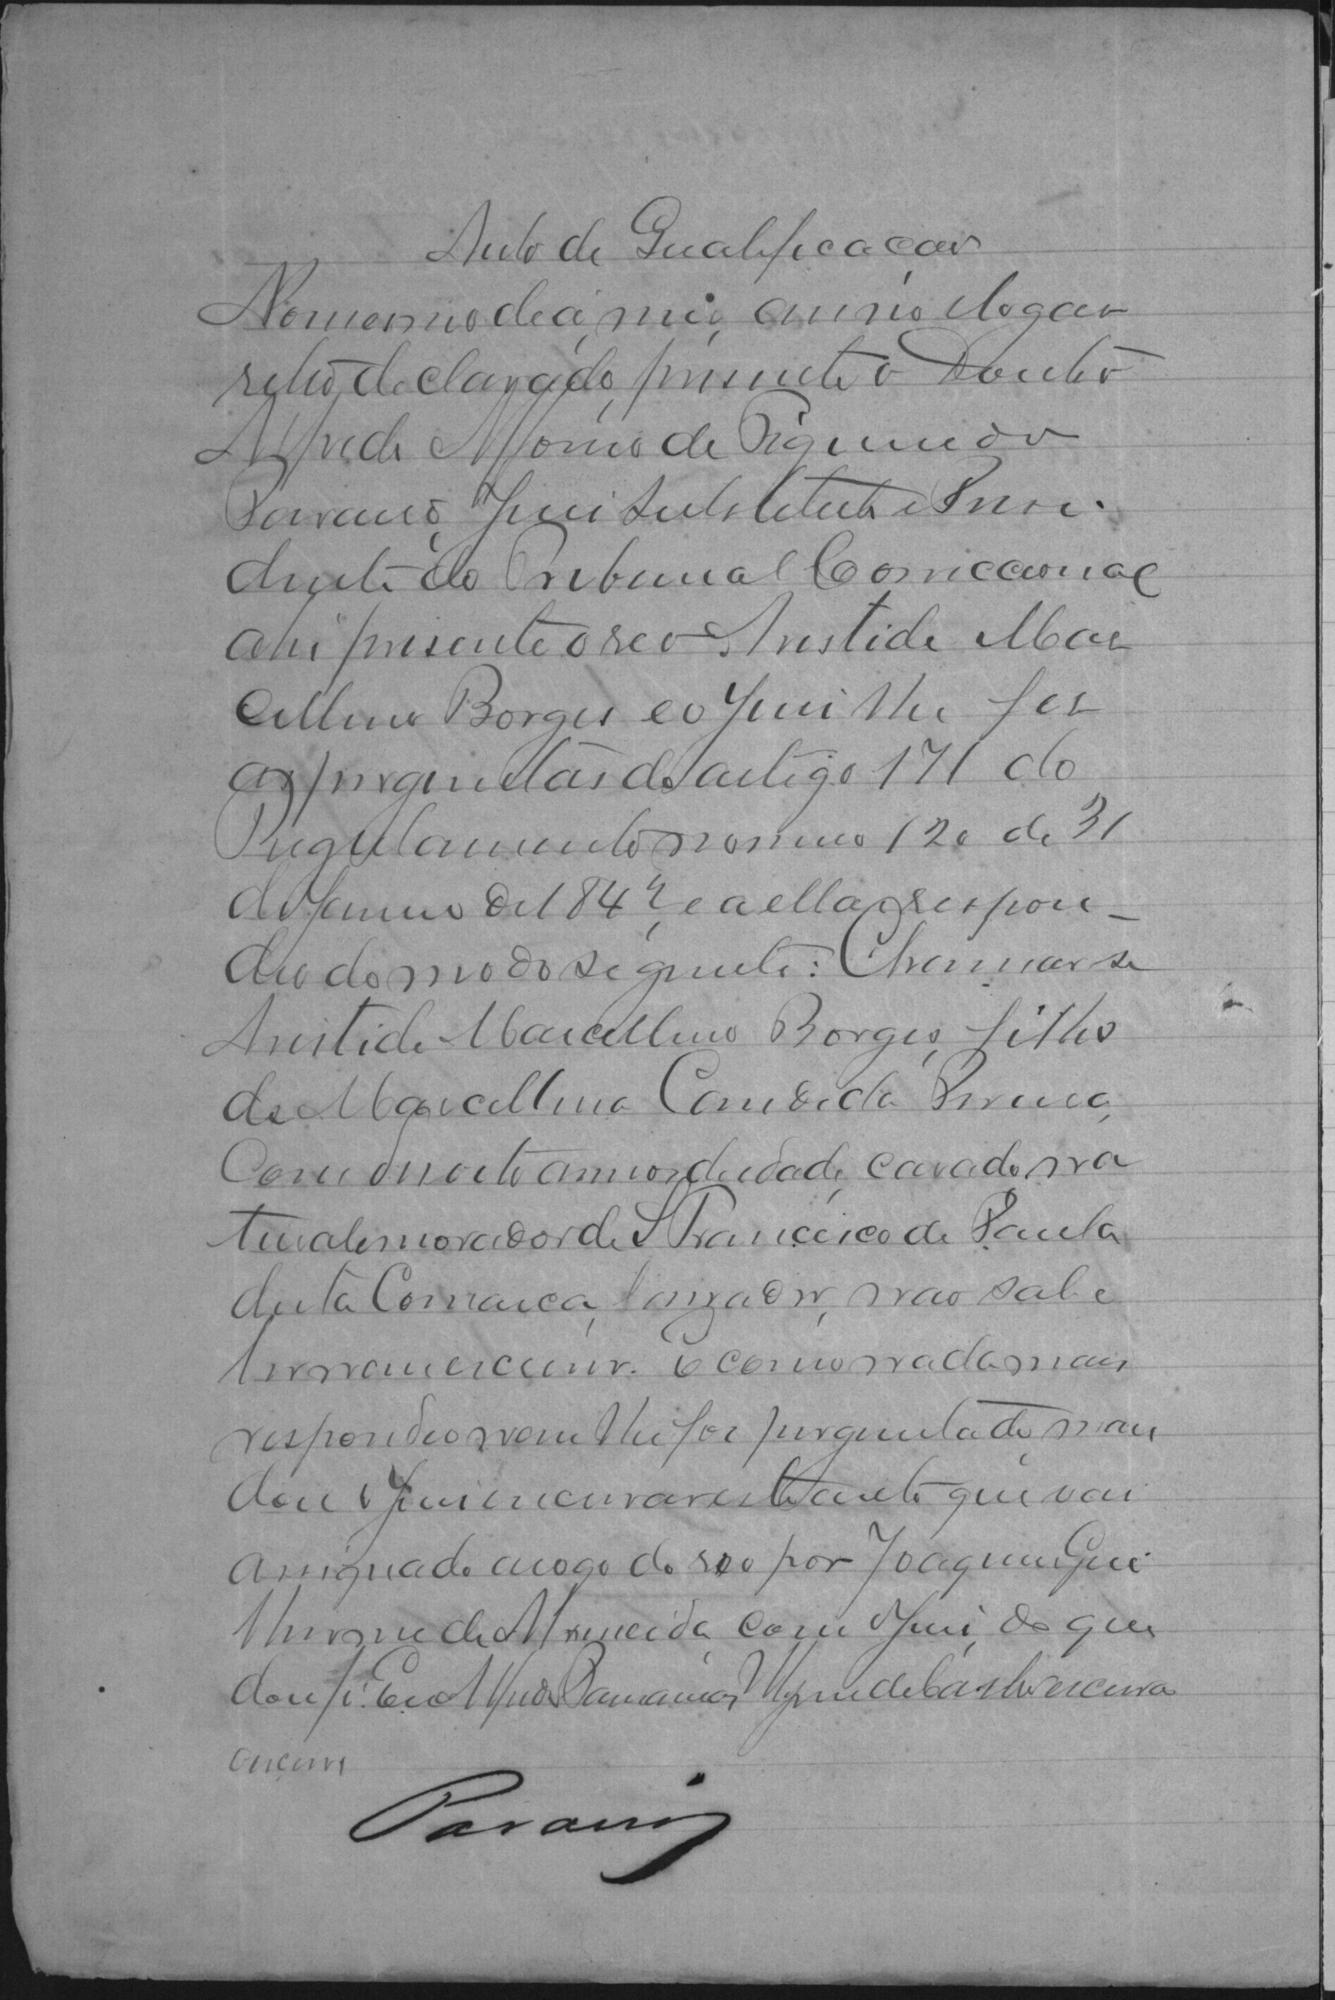 Auto de Qualificacao
No mesmo dia, mez, anno e logar
retro declarado, presente o Doutor
Alfredo de Figueiredo
Paraná, Juiz Substituto e Presi-
dente do Tribunal Correccional
ahi presente o reo Aristide Mar
cellino Borges e o Juiz lhe fez
as perguntas do artigo 171 do
Regulamento nomero 120 de 31
de Janeiro de 1842, e a ellas respon-
deo do modo seguinte: Chamar se
Aristide Marcellino Borges, filho
de Marcellina Candida
Com annos de idade, casado, na
tural e morador de S Francisco de Paula
desta Comarca, não sabe
ler nem escrever. E como nada mais
respondeo nem lhe foi perguntado, man
dou o Juiz encerrar este auto que vai
assignado a rogo do reo por Joaquim Gui
lherme de Almeida com o Juiz, do que
dou fé. Eu
escrevi